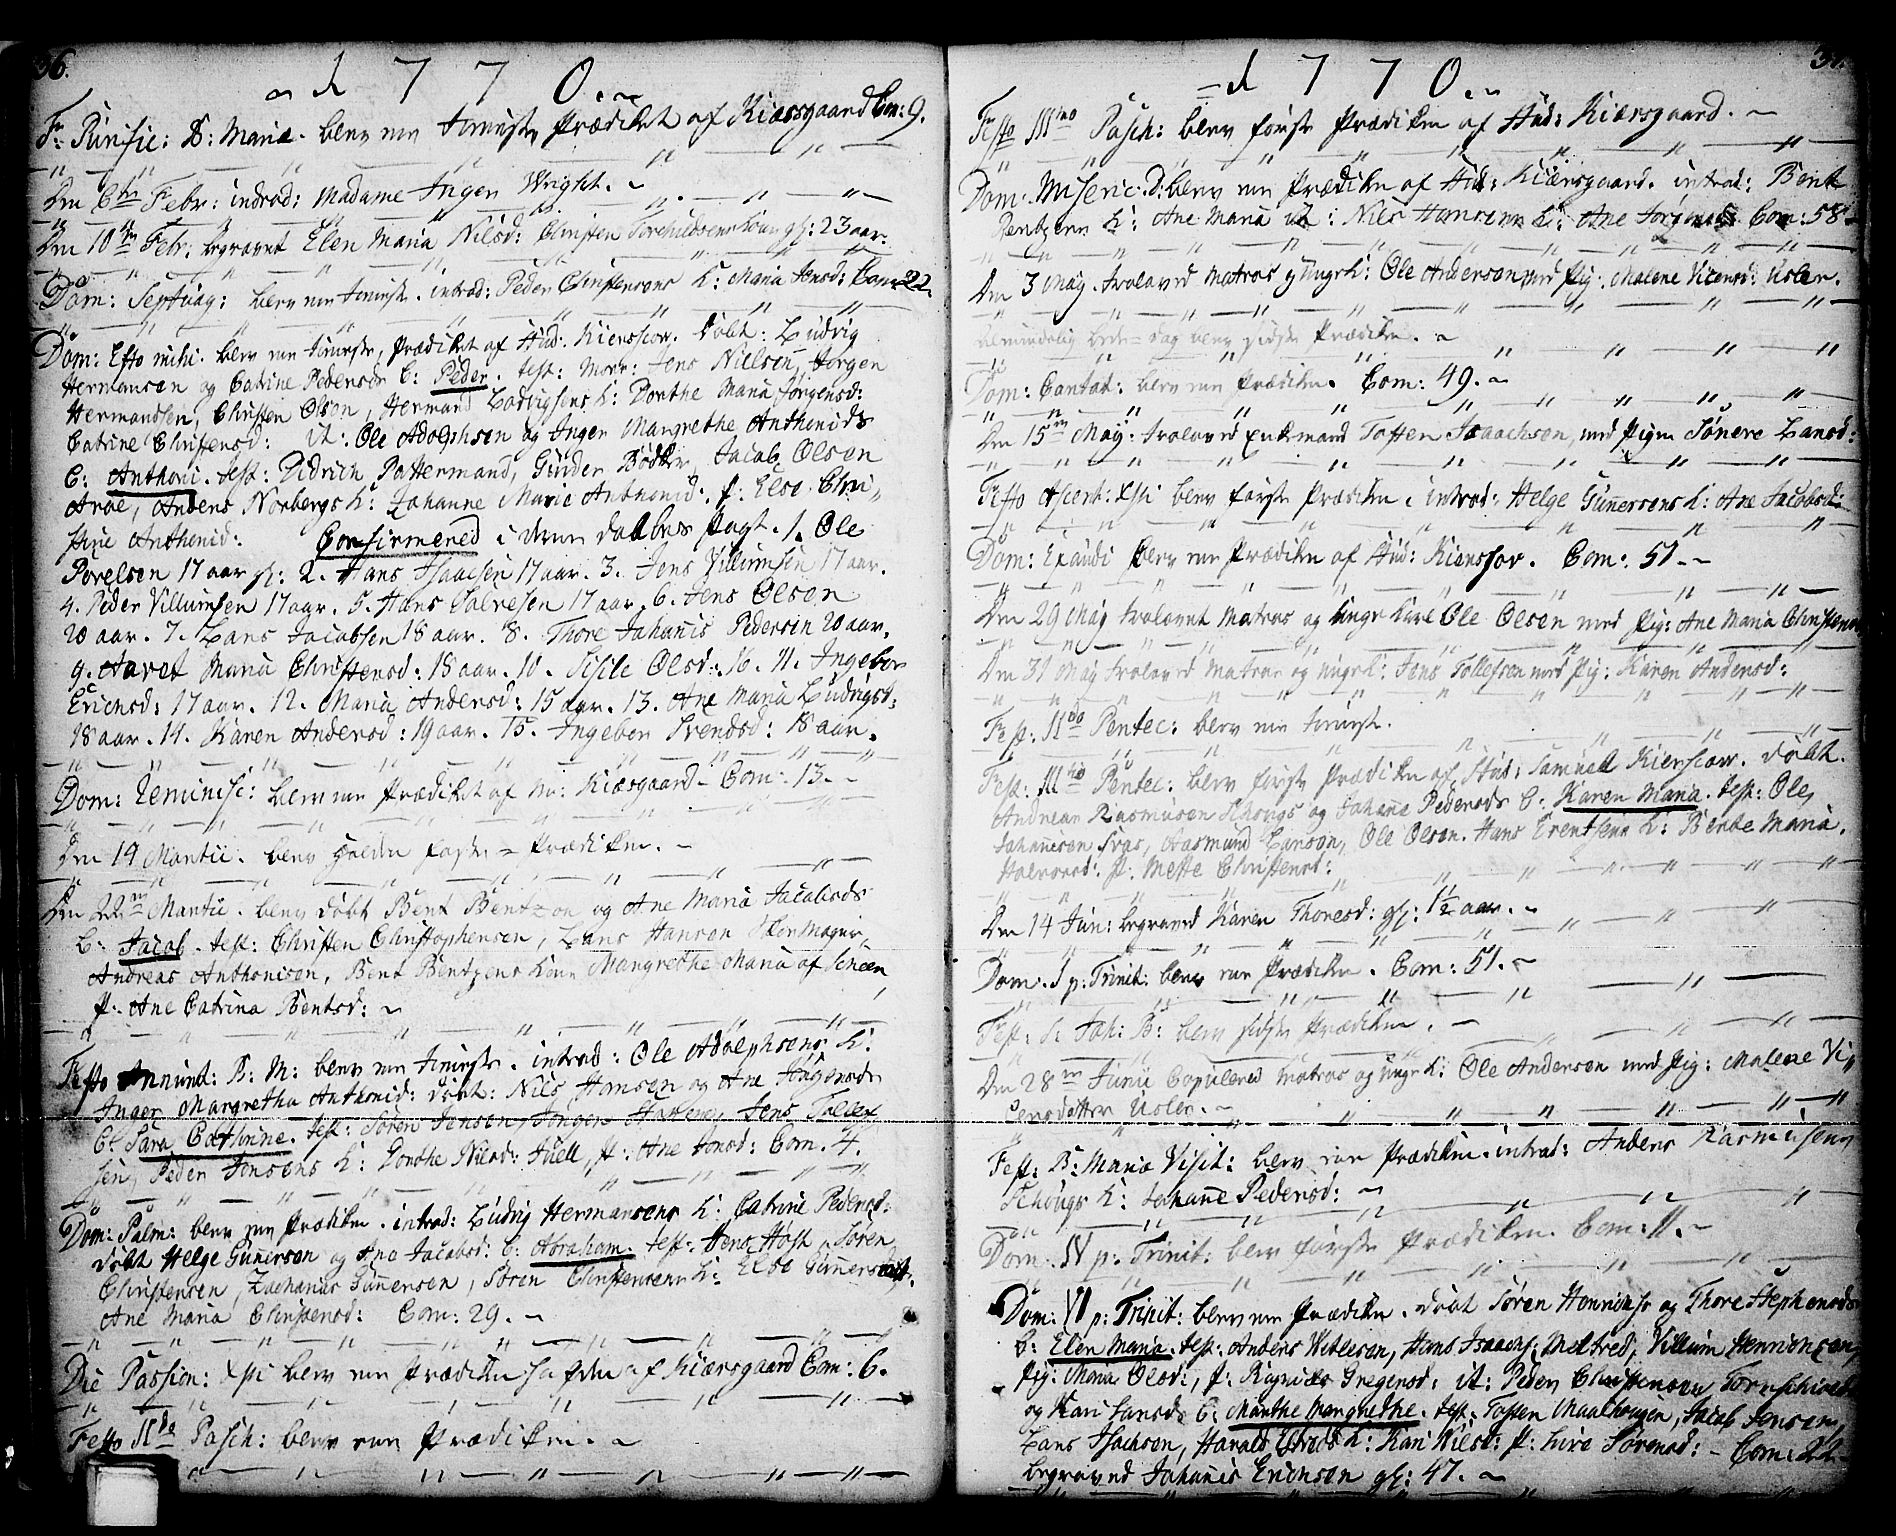 36.
1770.
Fr. Purific: B: Mariæ. blev een Tieniste, Prædiket af Kiærsgaard Com: 9.
Den 6te Febr: introd: Madame Inger Wright.
Den 10de Febr. begravet Elen Maria Nilsd: Christen Torchildsens Kone gl: 23 aar.
Dom: Septuag: blev een Tieniste. introd: Peder Christensens K: Maria Jensd: Com: 22.
Dom: Esto mihi. blev een Tieniste, Prædiket af Stud: Kierscow. döbt: Ludvig
Hermansen og Catrine Pedersdr B: Peder. test: Mons: Jens Nielsen, Jörgen
Hermandsen, Christen Olsen, Hermand Ludvigsens K: Dorthe Maria Jörgensd:
Catrine Christensd: it: Ole Adolphsen og Inger Margrethe Anthonisdr
B: Anthoni. test: Didrich Pattermand, Gunder Bödker, Jacob Olsen
Aroe, Anders Norbergs K: Johanne Marie Anthonid: p: Else Chri-
stine Anthonid: Confirmered i deres daabes Pagt. 1. Ole
Povelsen 17 aar gl: 2. Hans Isaacsen 17 aar. 3. Jens Villumsen 17 aar.
4. Peder Villumsen 17 aar. 5. Hans Halvesen 17 aar. 6. Jens Olsen
20 aar. 7. Lars Jacobsen 18 aar. 8. Thore Johanis Pedersen 20 aar.
9. Maria Christensd: 18 aar. 10. Sisile Olsd: 16. 11. Ingebor
Ericsd: 17 aar. 12. Maria Andersd: 15 aar. 13. Ane Maria Ludvigsd:
18 aar. 14. Karen Andersd: 19 aar. 15. Ingebor Svendsd: 18 aar.
Dom: Reminisc: blev een Prædiket af Kiærsgaard Com: 13.
Den 14 Martii. blev holden faste-Prædiken.
Den 22de Martii. blev döbt Bent Bentzon og Ane Maria Jacobsdr
B: Jacob. test: Christen Christophersen, Lars Hansen
Andreas Anthonisen, Bent Bentzens Kone Margrethe Maria af Scheen
p: Ane Catrina Bentsd:
Festo Annunt: B: M: blev een Tieniste. introd: Ole Adolphsens K:
Inger Margretha Anthonid: döbt: Nils Hansen og Ane Jörgensdr
B: Sara Cathrine. test: Sören Jensen, Jörgen Jens Tollef
sen, Peder Jensens K: Dorthe Nilsd: Juell, p: Ane Jensd: Com. 4.
Dom: Palm: blev een Prædiken. introd: Ludvig Hermansens K: Catrine Pedersd:
döbt Helge Gunersen og Ane Jacobsd: B: Abraham. test: Jens Höst, Sören
Christensen, Zacharias Gunersen, Sören Christensens K: Else Gunersdat,
Ane Maria Christensd: Com: 29.
Die Passion: Xsti blev een Prædiken af Kiærsgaard Com: 6.
Festo IIda Pasch: blev een Prædiken.
37.
1770.
Festo IIItio Pasch: blev förste Prædiken af Stud: Kiærsgaard.
Dom. Miseric. D: blev een Prædiken af Stud: Kiærsgaard. introd: Bent
Bentzens K: Ane Maria it: Nils Hansens K: Ane Jörgensd: Com: 58
Den 3 Maj. trolovet Matros og Ungk: Ole Andersen med Pig: Malene Vicensd: Usler.
Almindelig bede-dag blev sidste Prædiken.
Dom: Cantat: blev een Prædiken. Com: 49.
Den 15de Maj. trolovet Enkemand Tosten Isaachsen, med Pigen Sönere Larsd:
Festo Ascens: Xsti blev förste Prædiken introd: Helge Gunersens K: Ane Jacobsd:
Dom: Exaudi blev een Prædiken af Stud: Kierscov. Com: 51.
Den 29 Maj trolovet Matros og Ungr Karl Ole Olsen med Pig: Ane Maria Christensd
Den 31 Maj trolovet Matros og Ungk: Jens Tollefsen med Pig: Karen Andersd:
Fest: IIdo Pentec: blev een Tieniste.
Fest: IIItio Pentec: blev förste Prædiken af Stud: Samuel Kierscow. döbt.
Andreas Rasmusen Schougs og Johana Pedersdr B: Karen Maria. test: Ole
Johanesen Aasmund Larsen, Ole Olsen. Hans Erentsens K: Bente Maria.
Halvorsd: p: Mette Christensd:
Den 14 Jun: begravet Karen Thoresd: gl: 1½ aar.
Dom. I p: Trinit: blev een Prædiken. Com: 51.
Fest: St Joh: B: blev sidste Prædiken.
Den 28de Junii Copulered Matros og Ungk: Ole Andersen med Pig: Malene Vi-
censdatter Usler.
Fest: B: Mariæ Visit: blev een Prædiken. introd: Anders Rasmusens
Schougs K: Johane Pedersd:
Dom: IV p: Trinit: blev förste Prædiken. Com: 11.
Dom: VI p: Trinit: blev een Prædiken. döbt Sören Henrichs: og Thore Stephensdr
B: Elen Maria. test: Anders Hans Isaachs: Villum Henrichsen
Pig: Maria Olsd:, p: Gregersd: it: Peder Christensen
og Kari Larsdr B: Marthe Margrethe. test: Tosten Maalhougen, Jacob Jensen,
Lars Isachsen, Harald K: Kari Nilsd: p: Sörensd: Com: 22.
begravet Johanis Erichsen gl: 47.